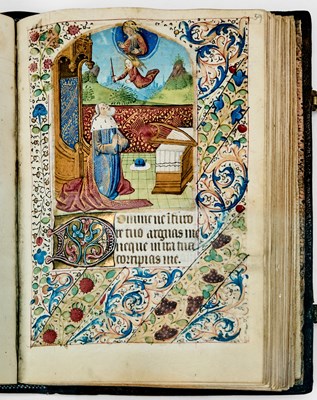 Domine ne ī furo
re tuo arguas me
neque in ira tua
corripias me.